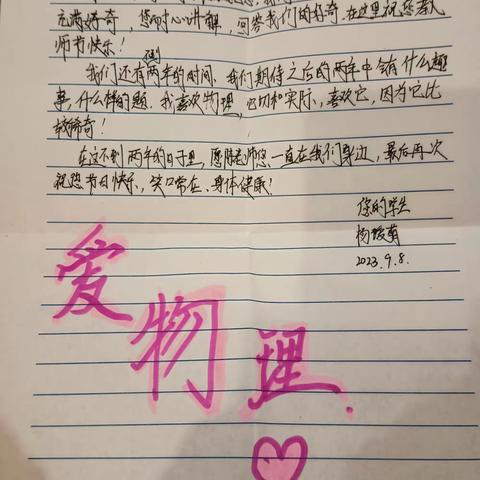 充满好奇，您耐心讲解，回答我们的好奇。在这里祝您教
师节快乐！
我们还有不到两年的时间，我们期待之后的两年中会有什么趣
事，什么样的题。我喜欢物理，它切和实际，喜欢它，因为它比
较稀奇！
在这不到两年的日子里，愿陈老师您一直在我们身边，最后再次
祝您节日快乐，笑口常在、身体健康！
您的学生
杨媛萌
2023.9.8.
爱
物
理.